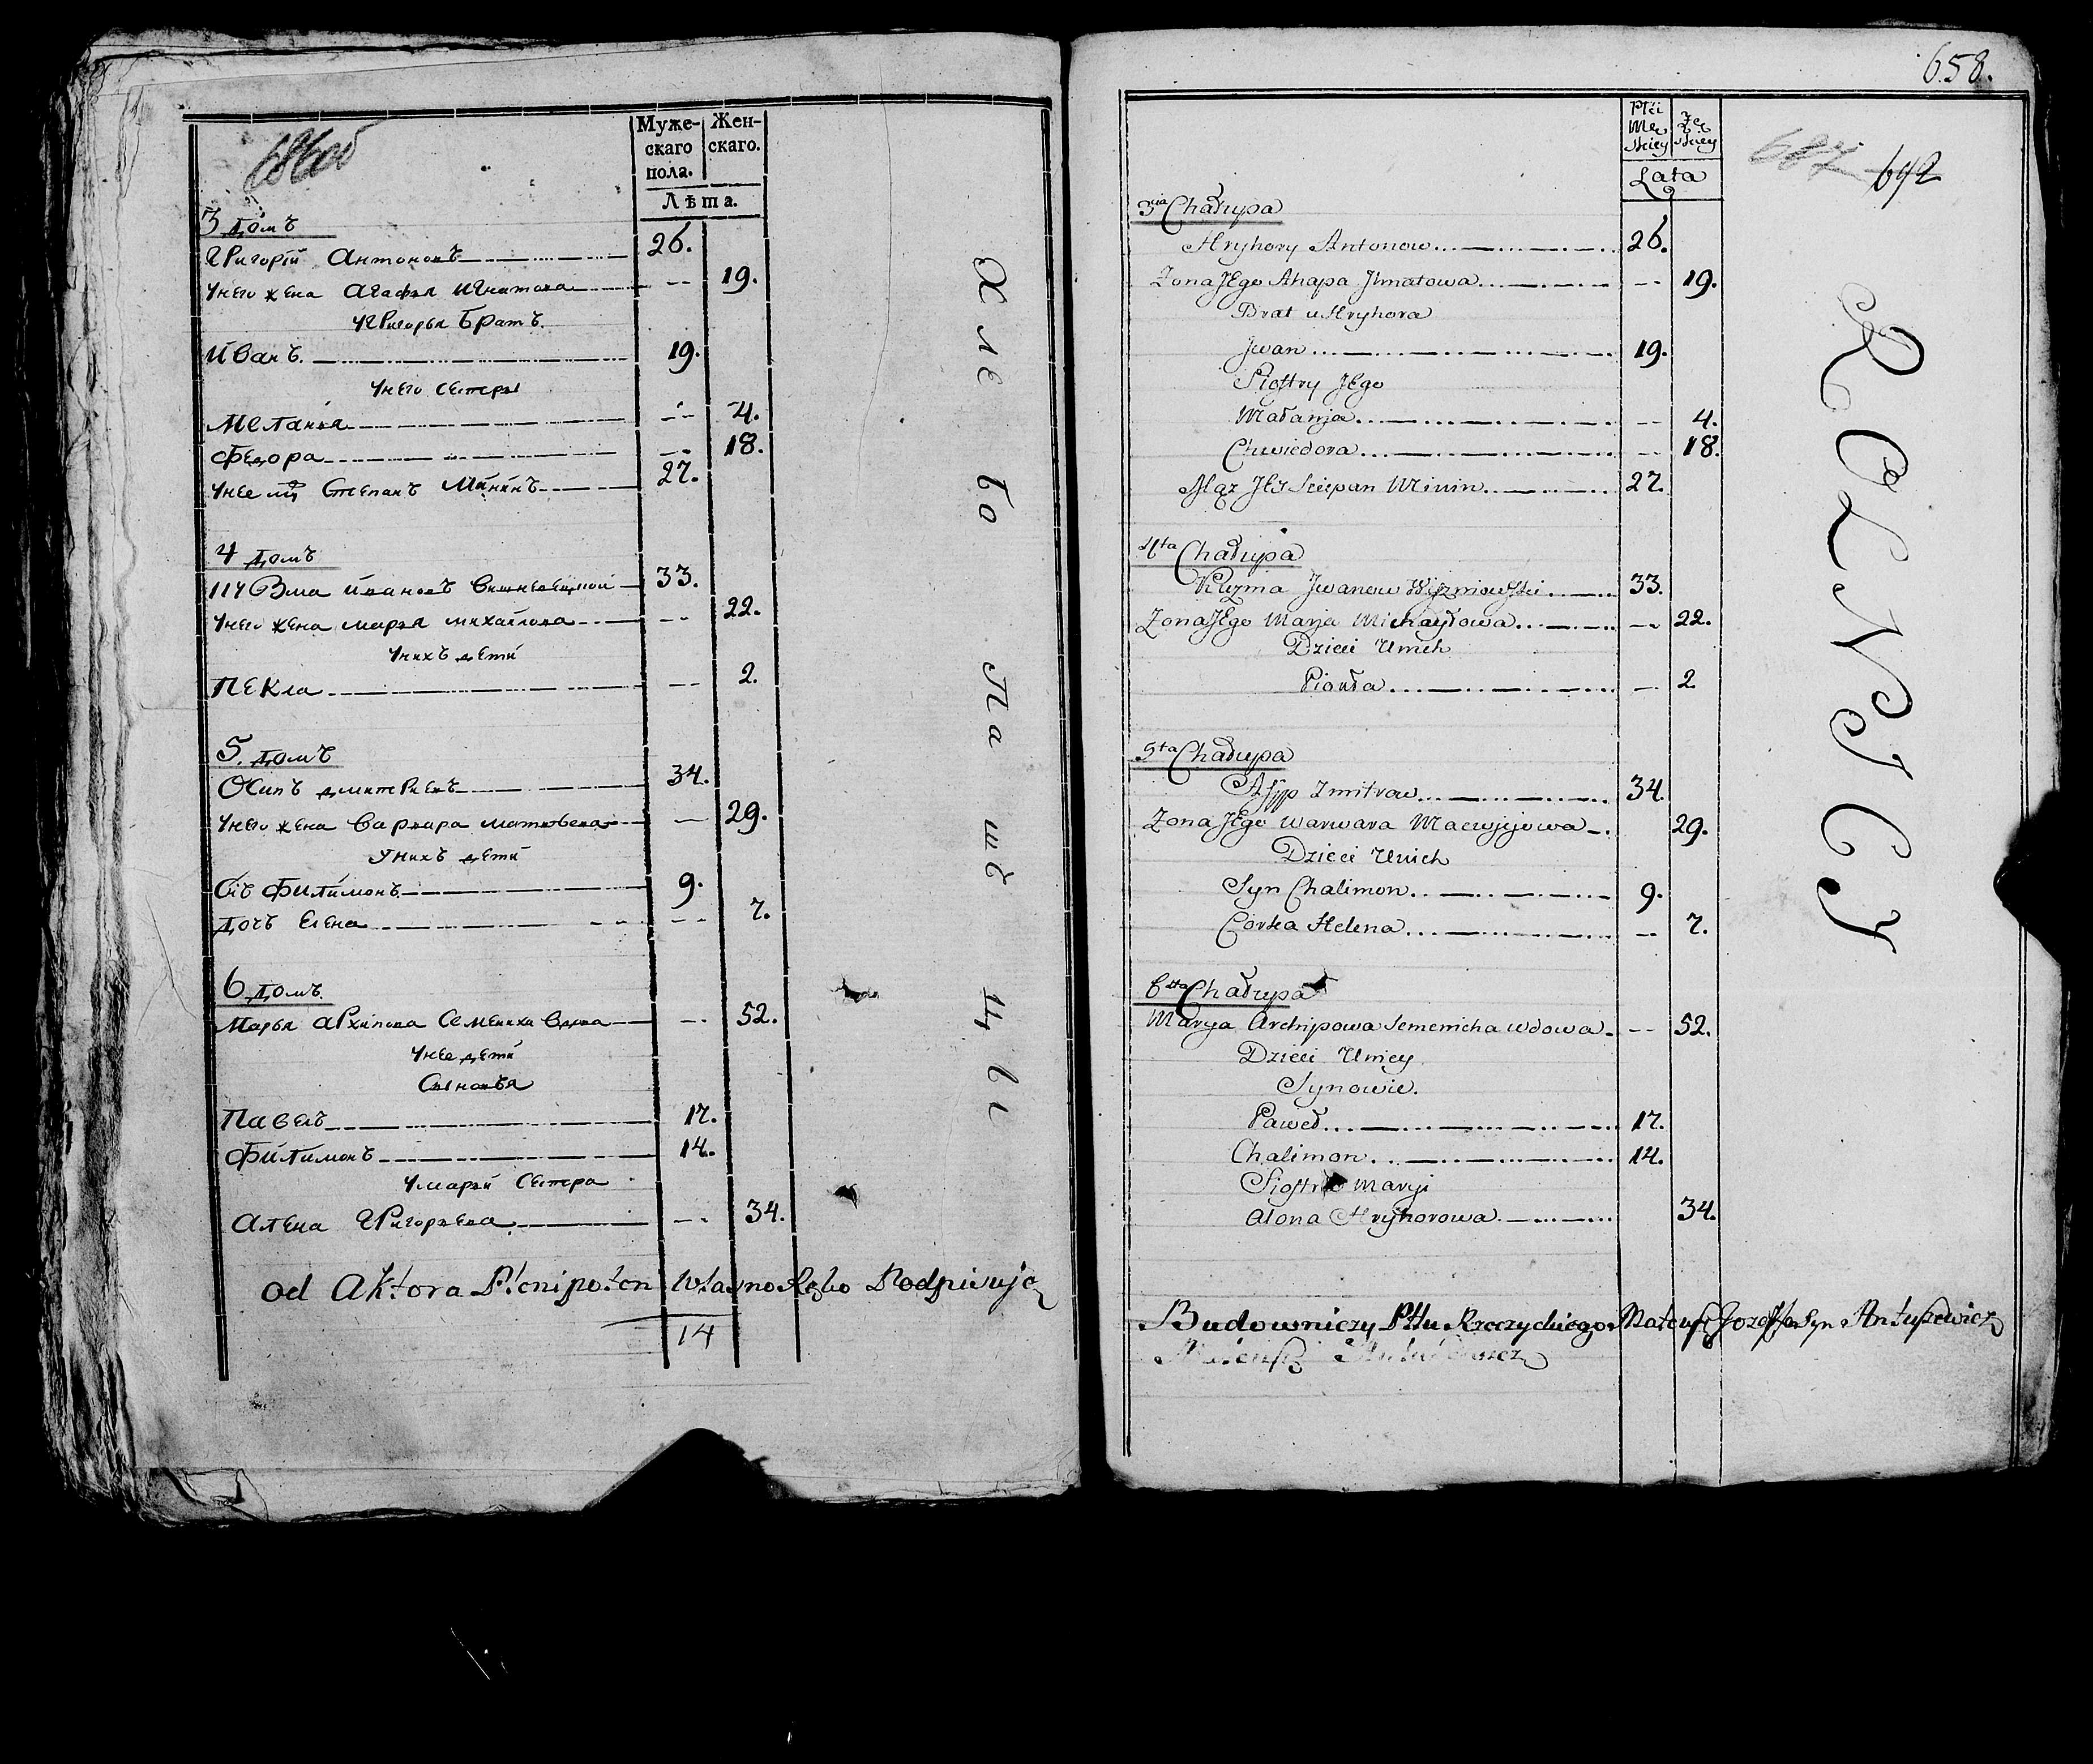 686об
Муже-
скаго
пола.
Жен-
скаго.
Лѣта.
3 домъ
Григорій Антоновъ 26.
Унего жена Агафья Игнатова -- 19.
У Григорья братъ
Иванъ 19.
Унего сестры
Меланья -- 4.
Федора -- 18.
Унее мꙋ Степанъ Мининъ 27.
4 домъ
Ивановъ 33.
Унего жена Марья Михайлова -- 22.
Унихъ дети
Пекла -- 2.
5. домъ
Осипъ Дмитриевъ 34.
Унего жена Варвара Матвѣева -- 29.
Унихъ дети
Сiъ Филимонъ 9.
Дочь Елена -- 7.
6 домъ
Марья Архипова Семениха вдова -- 52.
Унее дети
Сыновья
Павелъ 17.
Филимонъ 14.
У Марьи сестра
Алена Григорьева -- 34.
Хлебопашцы
od Aktora Plenipoten własnoręko Podpisuję
14
658.
687 692
Płci
Mę
skiey
Że
skiey
Lata
3cia Chałupa
Hryhory Antonow 26.
Zona Jego Ahapa Jhnatowa -- 19.
Brat u Hryhora
Jwan 19.
Siostry Jego
Małanja -- 4.
Chwiedora -- 18.
Mąż Jey Sciepan Minin 27.
4ta Chałupa
Kuzma Jwanow Wiszniowski 33.
Zona Jego Marja Michayłowa -- 22.
Dzieci Unich
Piokła -- 2
5ta Chałupa
Asip Zmitrow 34.
Zona Jego Warwara Maciejowa 29.
Dzieci Unich
Syn Chalimon 9.
Corka Helena -- 7.
6ta Chałupa
Marya Archipowa Semenicha wdowa -- 52.
Dzieci Uniey
Synowie.
Paweł 17.
Chalimon 14.
Siostra Maryi
Alona Hryhorowa 34.
ROLNICY
Budowniczy Pttu Rzeczyckiego Mateusz Jozeffa Syn Antuszewicz
Mateusz Antuszewicz